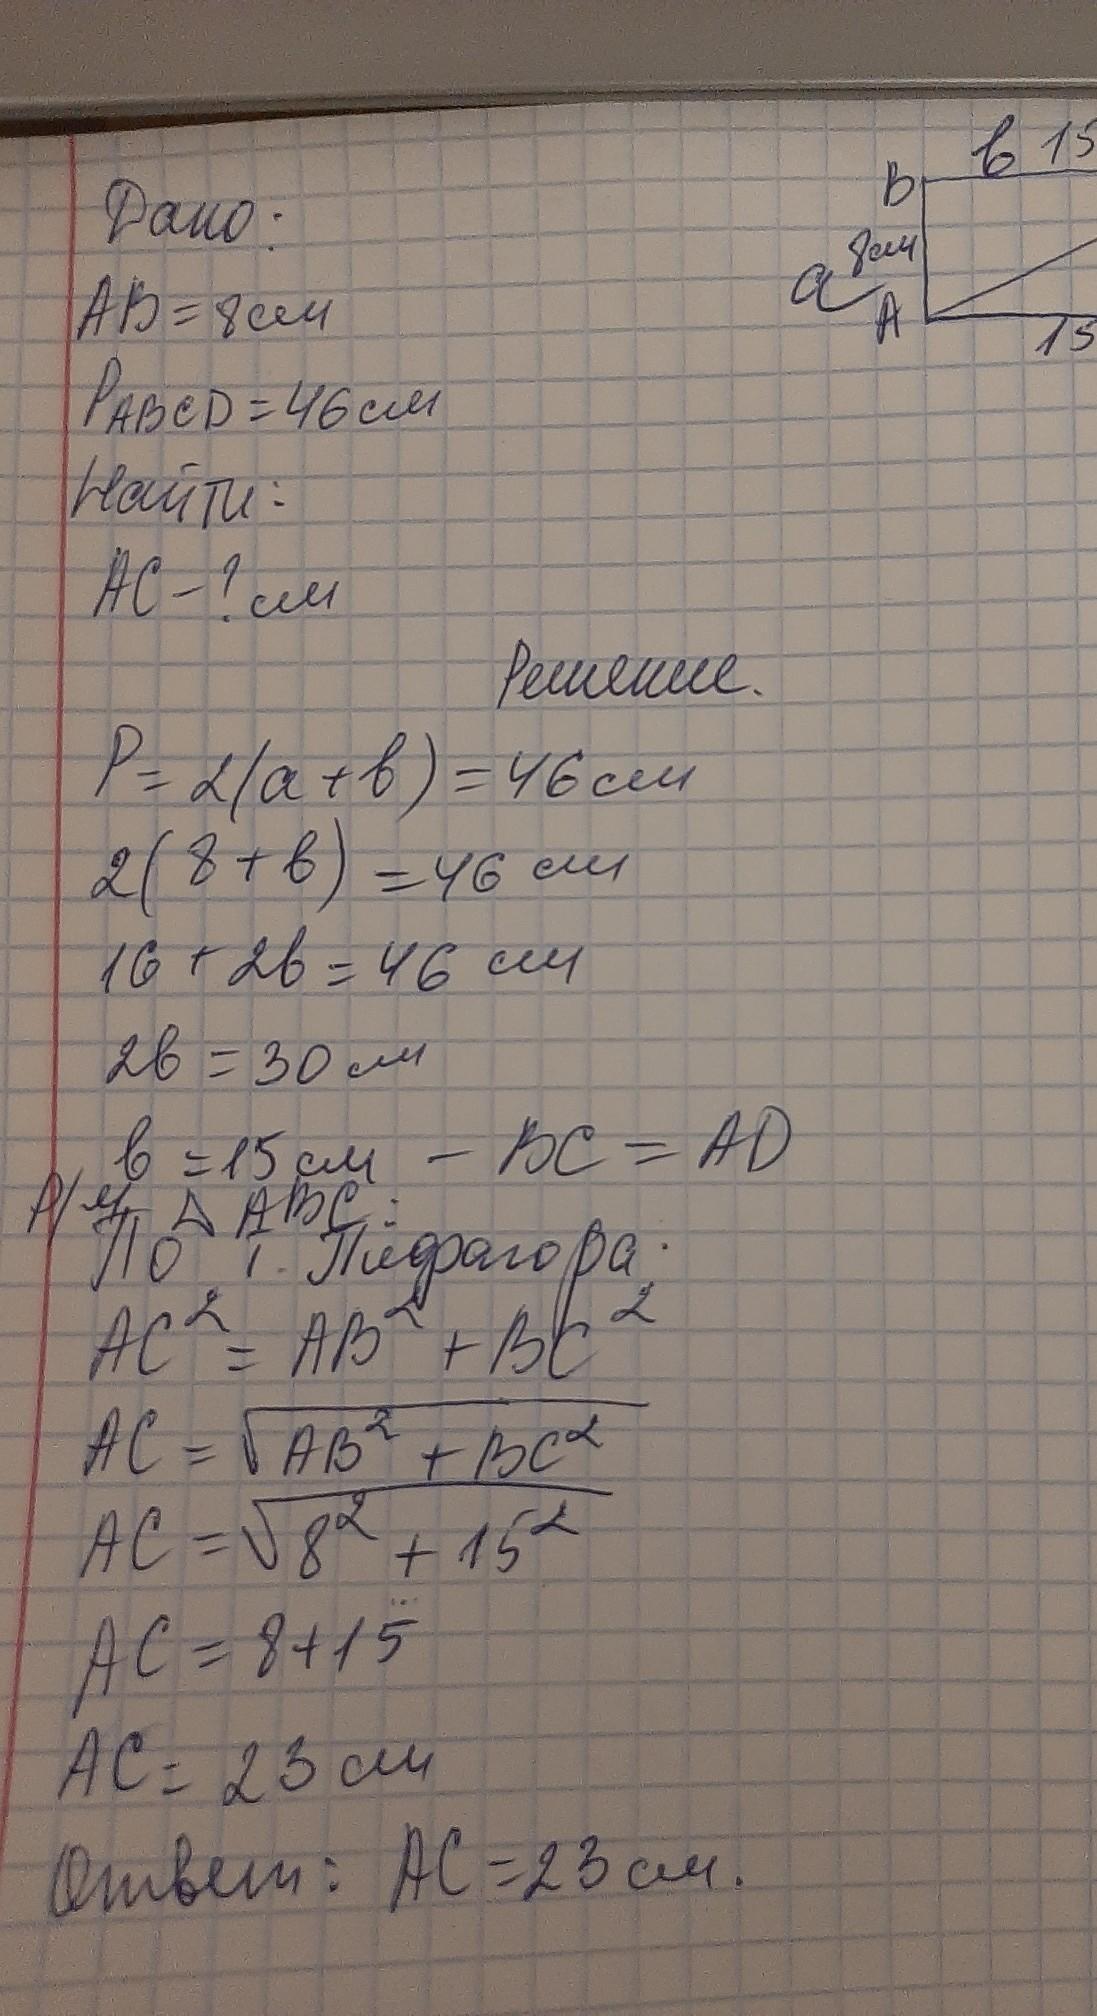 Дано:
в 15
В
АВ = 8 см
8см
а
А
15
PABCD = 46 см
Найти:
АС - ? см
Решение.
P = 2(a + в) = 46 см
2(8 + в) = 46 см
16 + 2в = 46 см
2в = 30 см
в = 15 см - BC = AD
Р/м △ ABC:
По т. Пифрагора:
AC² = AB² + BC²
AC = √AB² + BC²
AC = √8² + 15²
AC = 8 + 15
AC = 23 см
Ответ: AC = 23 см.